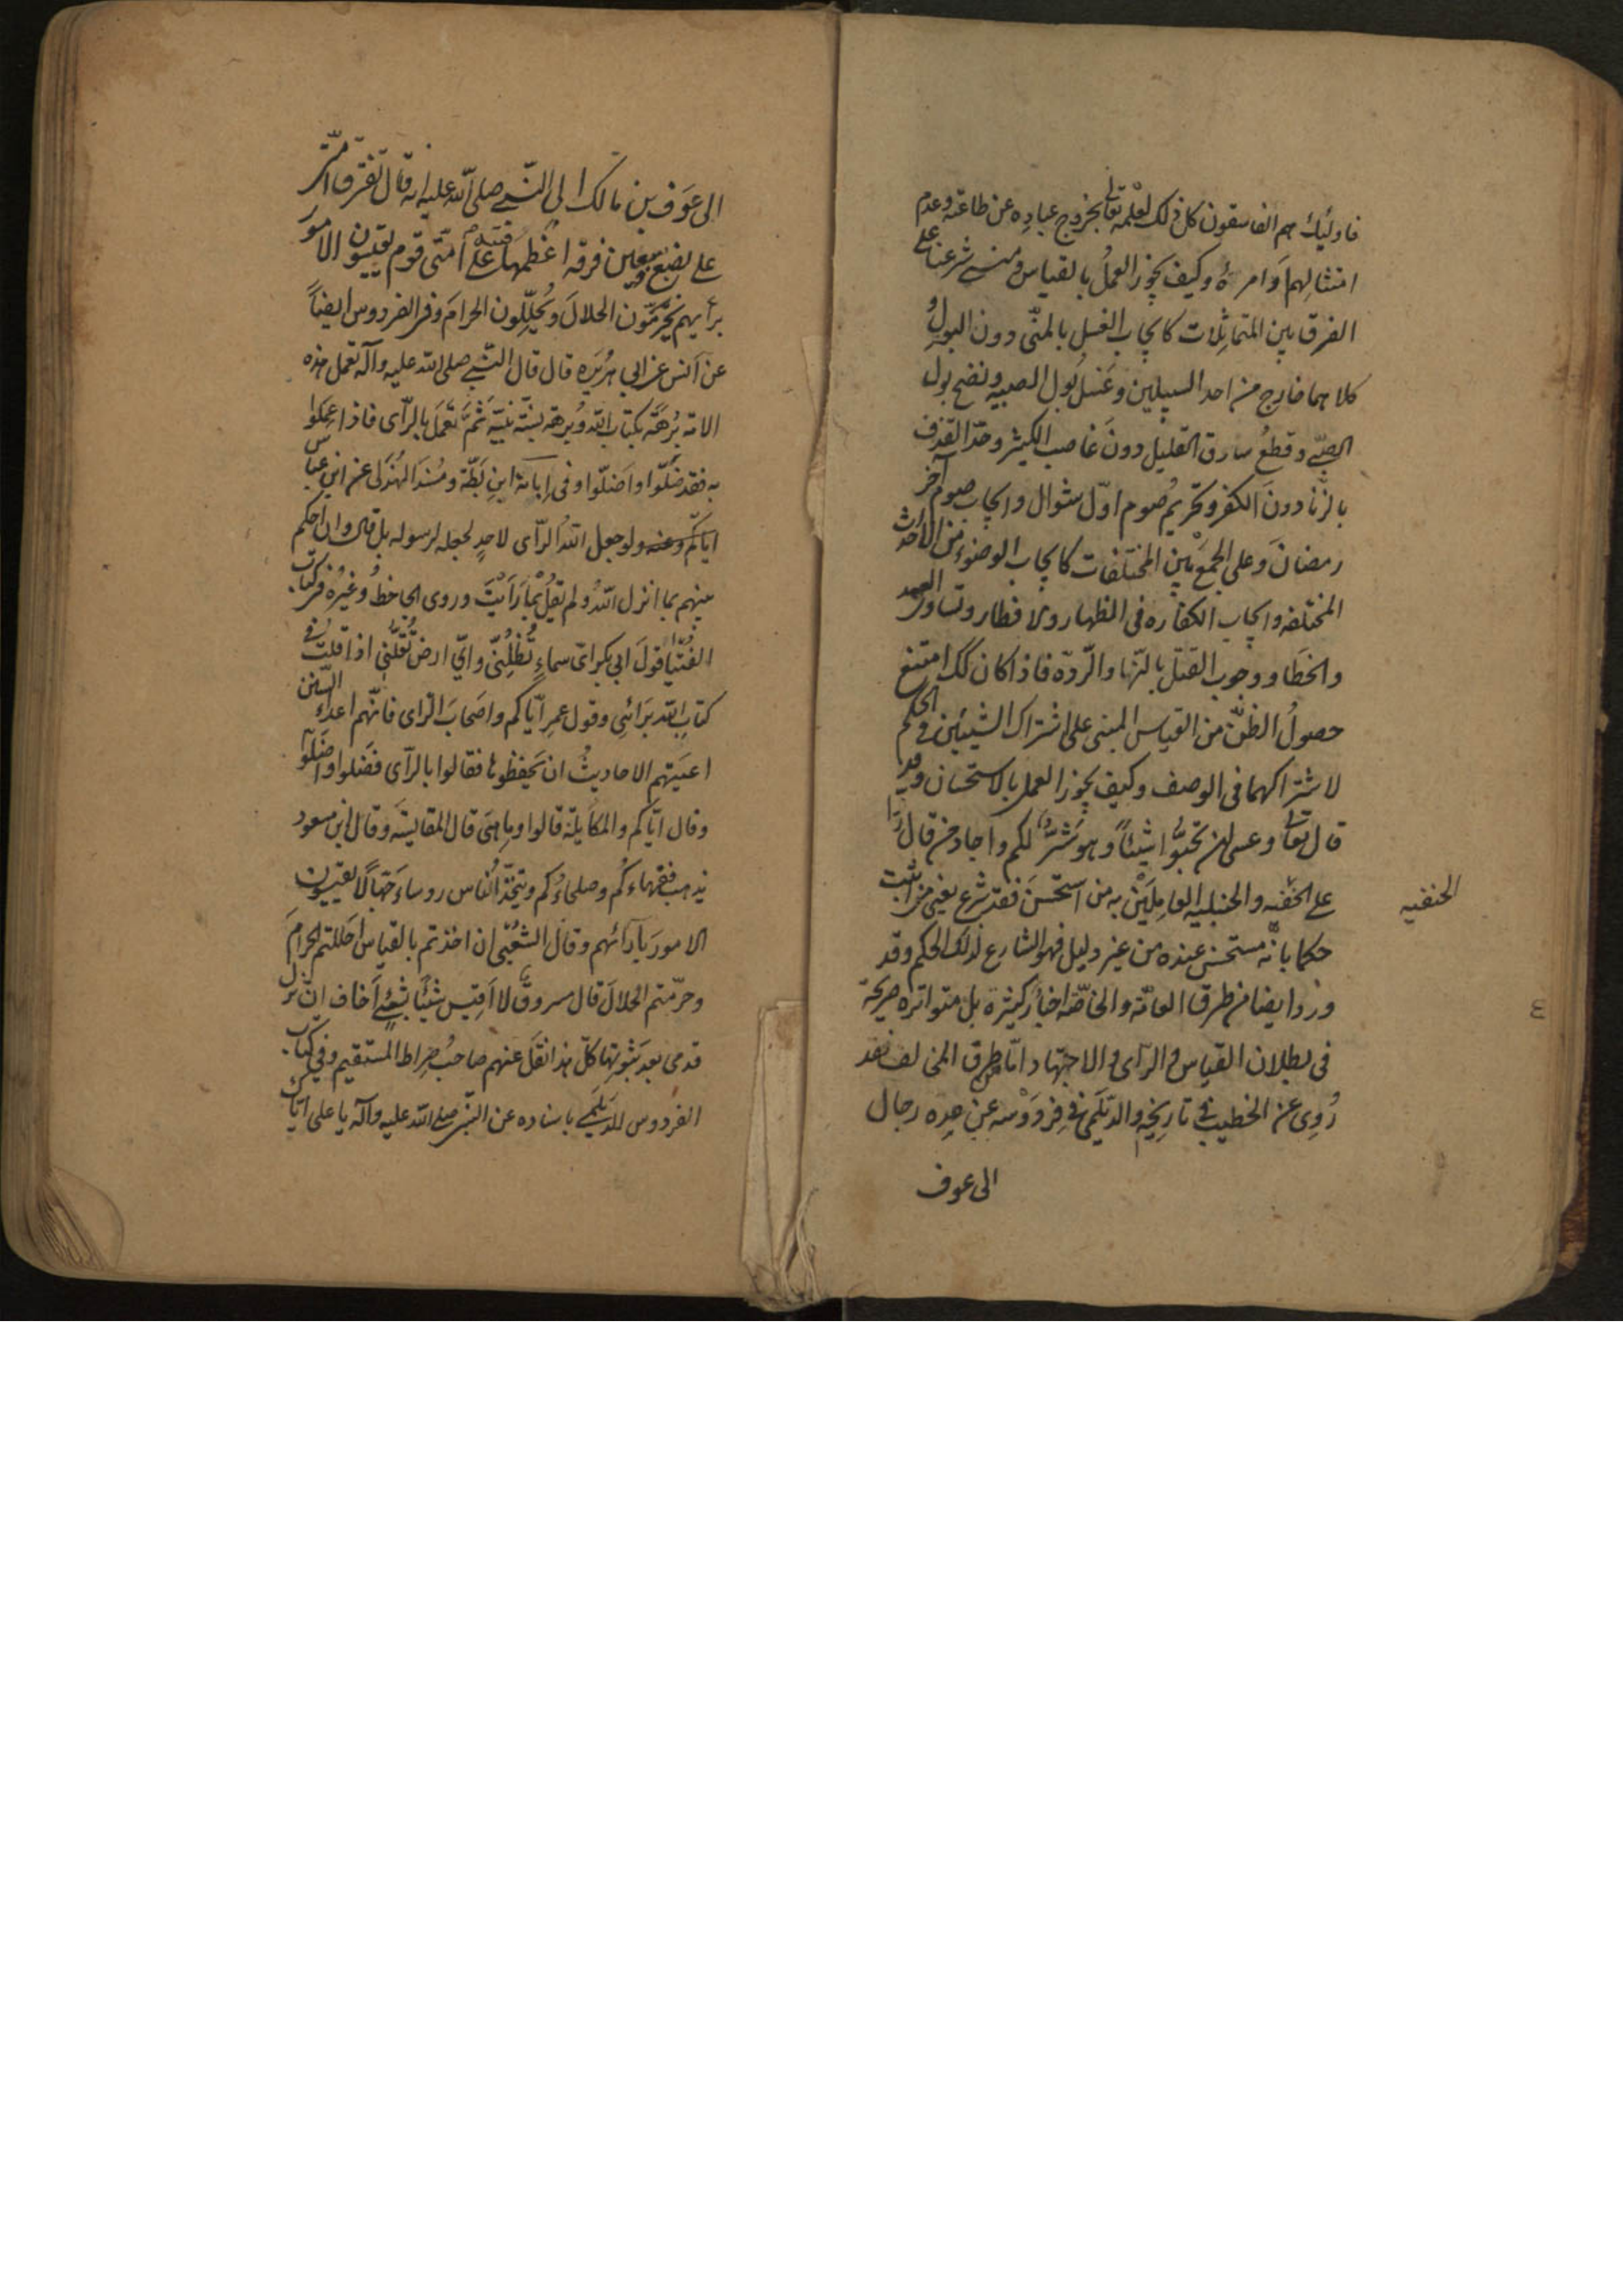 فاولئك هم الفاسقون كل ذلك لعلمه تعالى بخروج عباده عن طاعته وعدم
امتثالهم اوامره وكيف يجوز العمل بالقياس ومبنى شرعنا على
الفرق بين المتماثلات كايجاب الغسل بالمنّى دون البول و
كلاهما خارج من احد السبيلين وغسل بول الصبيه ونضح بول
الصّبى وقطع سارق القليل دون غاصب الكثير وحدّ القذف
بالزنا دون الكفر وتحريم صوم اوّل شوال وايجاب صوم آخر
رمضان وعلى الجمع بين المختلفات كايجاب الوضوء من الاحداث
المختلفه وايجاب الكفاره فى الظهار والافطار وتساوى العمد
والخطا ووجوب القتل بالزنا والردّه فاذا كان كك امتنع
حصول الظنّ من القياس المبنى على اشتراك الشيئين فى الحكم
لاشتراكهما فى الوصف وكيف يجوز العمل بالاستحسان وقد
قال تعالى وعسى ان تحبّوا شيئاً وهو شرٌّ لكم واجاد من قال ردّا
على الحنفيه والحنبليه العاملين به من استحسن فقد شرع يعنى من اثبت
الحنفيه
حكما بانّه مستحسن عنده من غير دليل فهو الشارع لذلك الحكم وقد
ورد ايضا من طرق العامّه والخاصّه اخبار كثيرة بل متواتره صريحة
فى بطلان القياس والرآى والاجتهاد امّا من طرق المخالف فقد
رُوى عن الخطيب فى تاريخه والديلمى فى فردوسه عن عده رجال
الى عوف
الى عوف بن مالك الى النّبى صلى الله عليه انه قال تفترق امّتى
على بضع وسبعين فرقه اعظمها فتنه على امتى قوم يقيسون الامور
برأيهم يحرّمون الحلال ويُحلّلون الحرام وفى الفردوس ايضاً
عن انس عن ابى هريره قال قال النّبى صلى الله عليه وآله تعمل هذه
الامة بُرهة بكتاب الله وبُرهة بسنّة نبيّه ثمّ تعمل بالرّأى فاذا عملوا
به فقد ضلّوا واضلّوا وفى ابانة ابن بطّة ومُسند الهُذلى عن ابن عباس
ايّاكم وعنه ولو جعل الله الرّأى لاحدٍ لجعله لرسوله بل قال وان احكم
بينهم بما انزل الله ولم يقل بما رأيت وروى الجاحظ وغيره فى كتاب
الفُتيا قول ابى بكر اىّ سماءٍ تُظلّنى واىّ ارض تُقلّنى اذا قلت فى
كتاب الله برائى وقول عمر ايّاكم واصحاب الرّاى فانّهم اعداء السّنن
اعيتهم الاحاديث ان يحفظوها فقالوا بالرّأى فضلوا واضلّوا
وقال ايّاكم والمكايلة قالوا وما هى قال المقايسة وقال ابن مسعود
يذهب فقهاءكم وصلحاءكم ويتخذ الناس روساء جهّالاً يقيسون
الامور بآرائهم وقال الشعبى ان اخذتم بالقياس احللتم الحرام
وحرّمتم الحلال قال مسروق لا اقيس شيئا بشئ اخاف ان تزل
قدمى بعد ثبوتها كلّ هذا نقل عنهم صاحب صراط المستقيم وفى كتاب
الفردوس للديلمى باسناده عن النبّى صلى الله عليه وآله يا على ايّاك